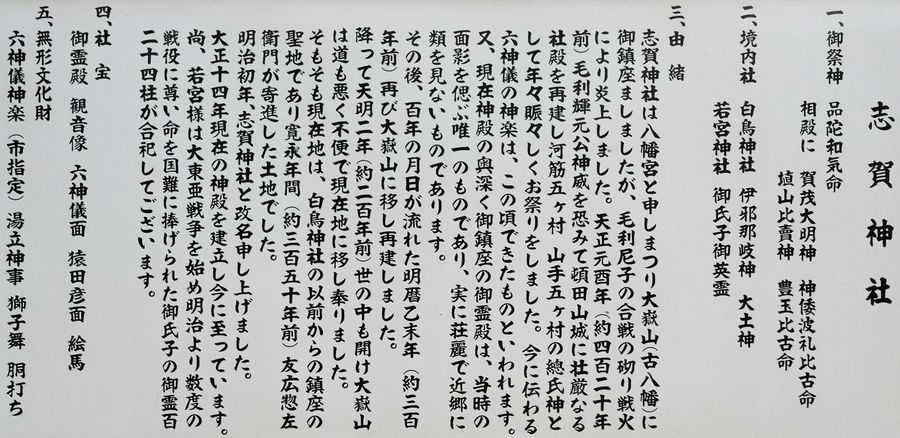 志賀神社
一、御祭神　品陀和気命
相殿に　賀茂大明神　神倭波礼比古命
埴山比賣神　豊玉比古命
二、境内社　白鳥神社　伊邪那岐神　大土神
若宮神社　御氏子御英霊
三、由緒
志賀神社は八幡宮と申しまつり大嶽山(古八幡)に
御鎮座ましましたが、毛利尼子の合戦の砌り戦火
により炎上しました。天正元酉年(約四百二十年
前)毛利輝元公神威を恐みて頓田山城に壮厳なる
社殿を再建し河筋五ヶ村　山手五ヶ村の總氏神と
して年々賑々しくお祭りをしました。今に伝わる
六神儀の神楽は、この頃できたものといわれます。
又、現在神殿の奥深く御鎮座の御霊殿は、当時の
面影を偲ぶ唯一のものであり、実に荘麗で近郷に
類を見ないものであります。
その後、百年の月日が流れた明暦乙末年(約三百
年前)再び大嶽山に移し再建しました。
降って天明二年(約二百年前)世の中も開け大嶽山
は道も悪く不便で現在地に移し奉りました。
そもそも現在地は、白鳥神社の以前からの鎮座の
聖地であり寛永年間(約三百五十年前)友広惣左
衛門が寄進した土地でした。
明治初年、志賀神社と改名申し上げました。
大正十四年現在の神殿を建立し今に至っています。
尚、若宮様は大東亜戦争を始め明治より数度の
戦役に尊い命を国難に捧げられた御氏子の御霊百
二十四柱が合祀してございます。
四、社宝
御霊殿　観音像　六神儀面　猿田彦面　絵馬
五、無形文化財
六神儀神楽(市指定)湯立神事　獅子舞　胴打ち